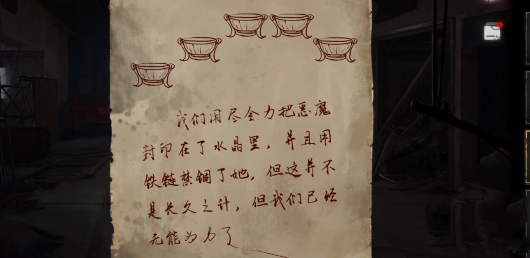 我们用尽全力把恶魔
封印在了水晶里，并且用
铁链禁锢了她，但这并不
是长久之计，但我们已经
无能为力了